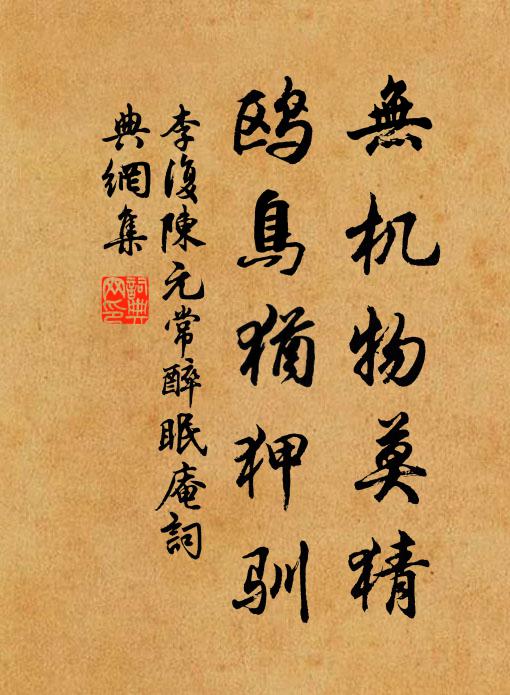 無机物莫猜
鸥鳥猶狎驯
李復陳元常醉眠庵詞
典網集
詞典
网印